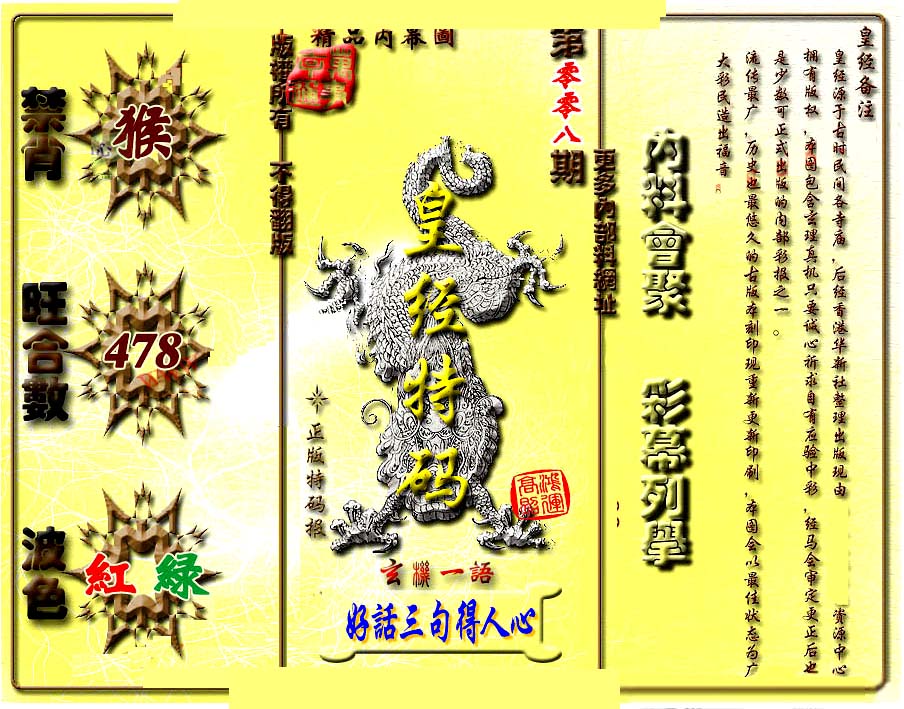 皇经备注
皇经源于古时民间各寺庙，后经香港华新社整理出版现由
资源中心
拥有版权，本图包含玄理真机只要诚心祈求自有应验中彩，经马会审定更正后也
是少数可正式出版的内部彩报之一。
流传最广，历史也最悠久的古版本刻印现重新更新印刷，本图会以最佳状态为广
大彩民造出福音
內料會聚
彩幕列舉
更多內部料網址
第零零八期
精品內幕圖
皇经特码
正版特码报
鴻運高照
玄機一語
好話三句得人心
版權所有 不得翻版
禁肖
猴
旺合數
478
波色
紅 綠